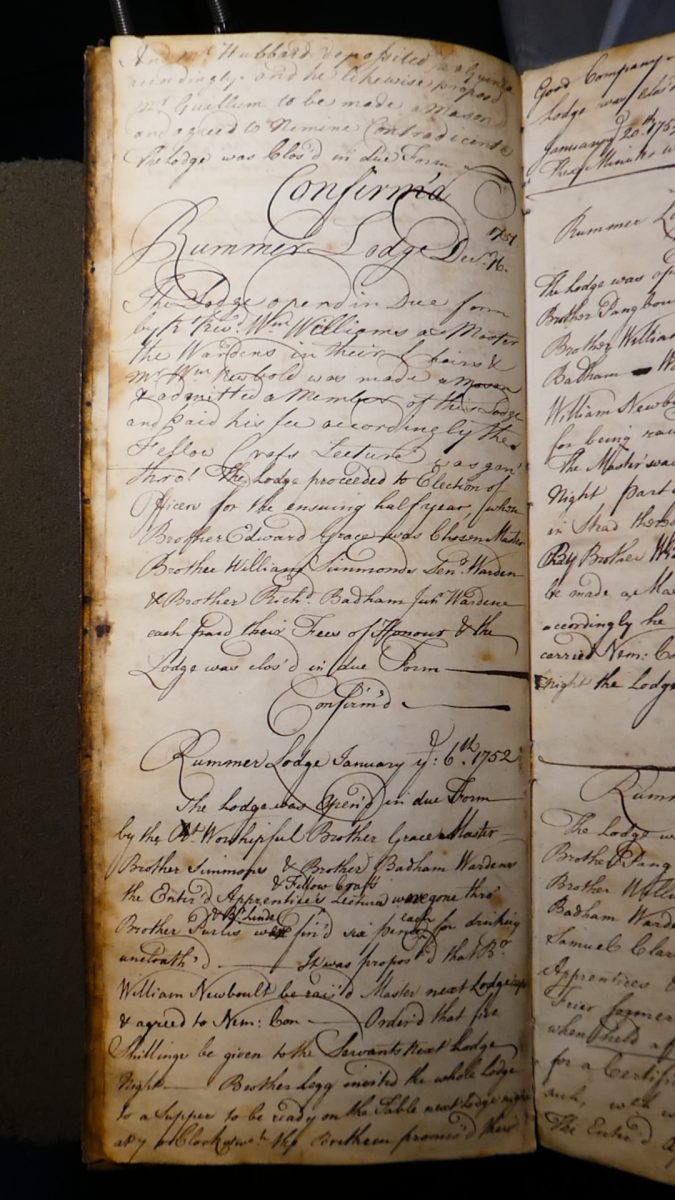 And Mr. Hubbard deposited
accordingly. and he likewise propos'd
Mr. to be made a Mason
and agreed to Nemine Contradicente
The Lodge was Clos'd in due Form
Confirm'd
Rummer Lodge Decr. 16. 1751
The Lodge opend in Due form
by Revd. Wm. Williams as Master
the Wardens in their Chairs &
Mr. Wm. Newbold was made a Mason
& admitted a Member of this Lodge
and paid his fee accordingly the
Fellow Crafs Lecture was gon
thro'. The Lodge proceeded to Election of
Officers for the ensuing half year, when
Brother Edward Grace was Chosen Master
Brother William Simmonds Senr. Warden
& Brother Richd. Badham Junr. Wardene
each paid their Fees of Honour & the
Lodge was clos'd in due Form
Confirm'd
Rummer Lodge January ye. 6th. 1752
The Lodge was Open'd in due Form
by the Rt. Worshipful Brother Grace Master
Brother Simmons & Brother Badham Wardens
the Enter'd Apprentice's & Fellow Crafts Lecture were gone thro'
Brother Purlis & Br. Linde fin'd six pence each for drinking
uncloath'd It was propos'd that Br.
William Newboult be rais'd Master next Lodge night
& agreed to Nem: Con Order'd that five
Shillings be given to the Servants next Lodge
Night Brother Legg invited the whole Lodge
to a Supper to be ready on the Table next Lodge night
at 7 o'Clock wch. the Bretheren promis'd their
Good Company
Lodge was clos'd
January ye 20th. 1752
These Minutes w
Rummer Lo
The Lodge was op
Brother Pangbou
Brother William
Badham Wa
William Newbo
for being rai
The Master's was
Night part
in Stead thereo
By Brother Wi
be made a Ma
accordingly he
carried Nem: Co
Night the Lodge
Rumm
The Lodge w
Brother Pang
Brother Willi
Badham Warde
Samuel Clar
Apprentices &
Frier former
when held a
for a Certifi
such, wch w
The Enter'd A